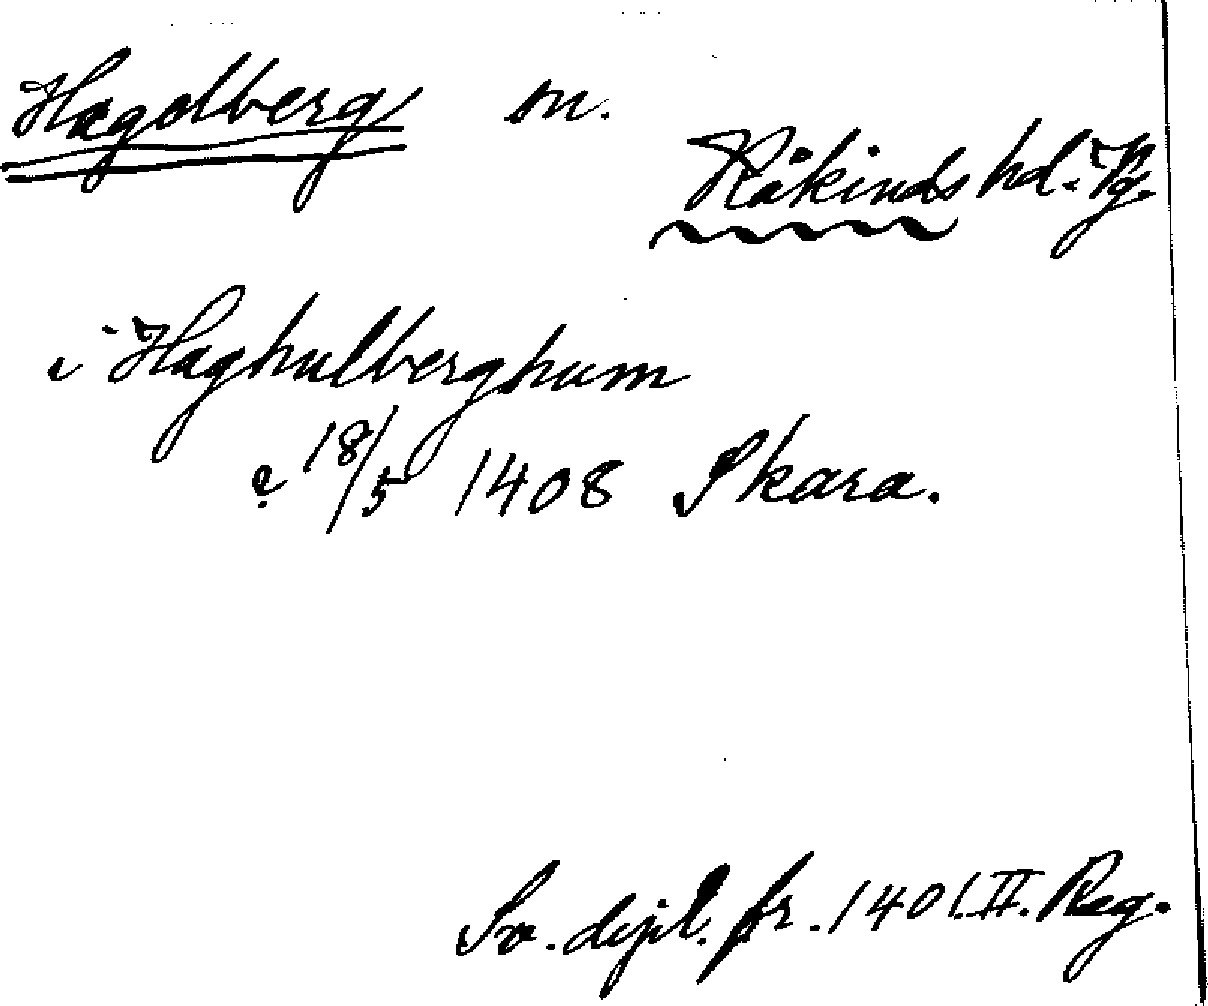 Hagelberg sn.
Kåkinds hd. Vg.
i Haghulberghum
e. 18/5 1408 Skara.
Sv. dipl. fr. 1401. II. Reg.